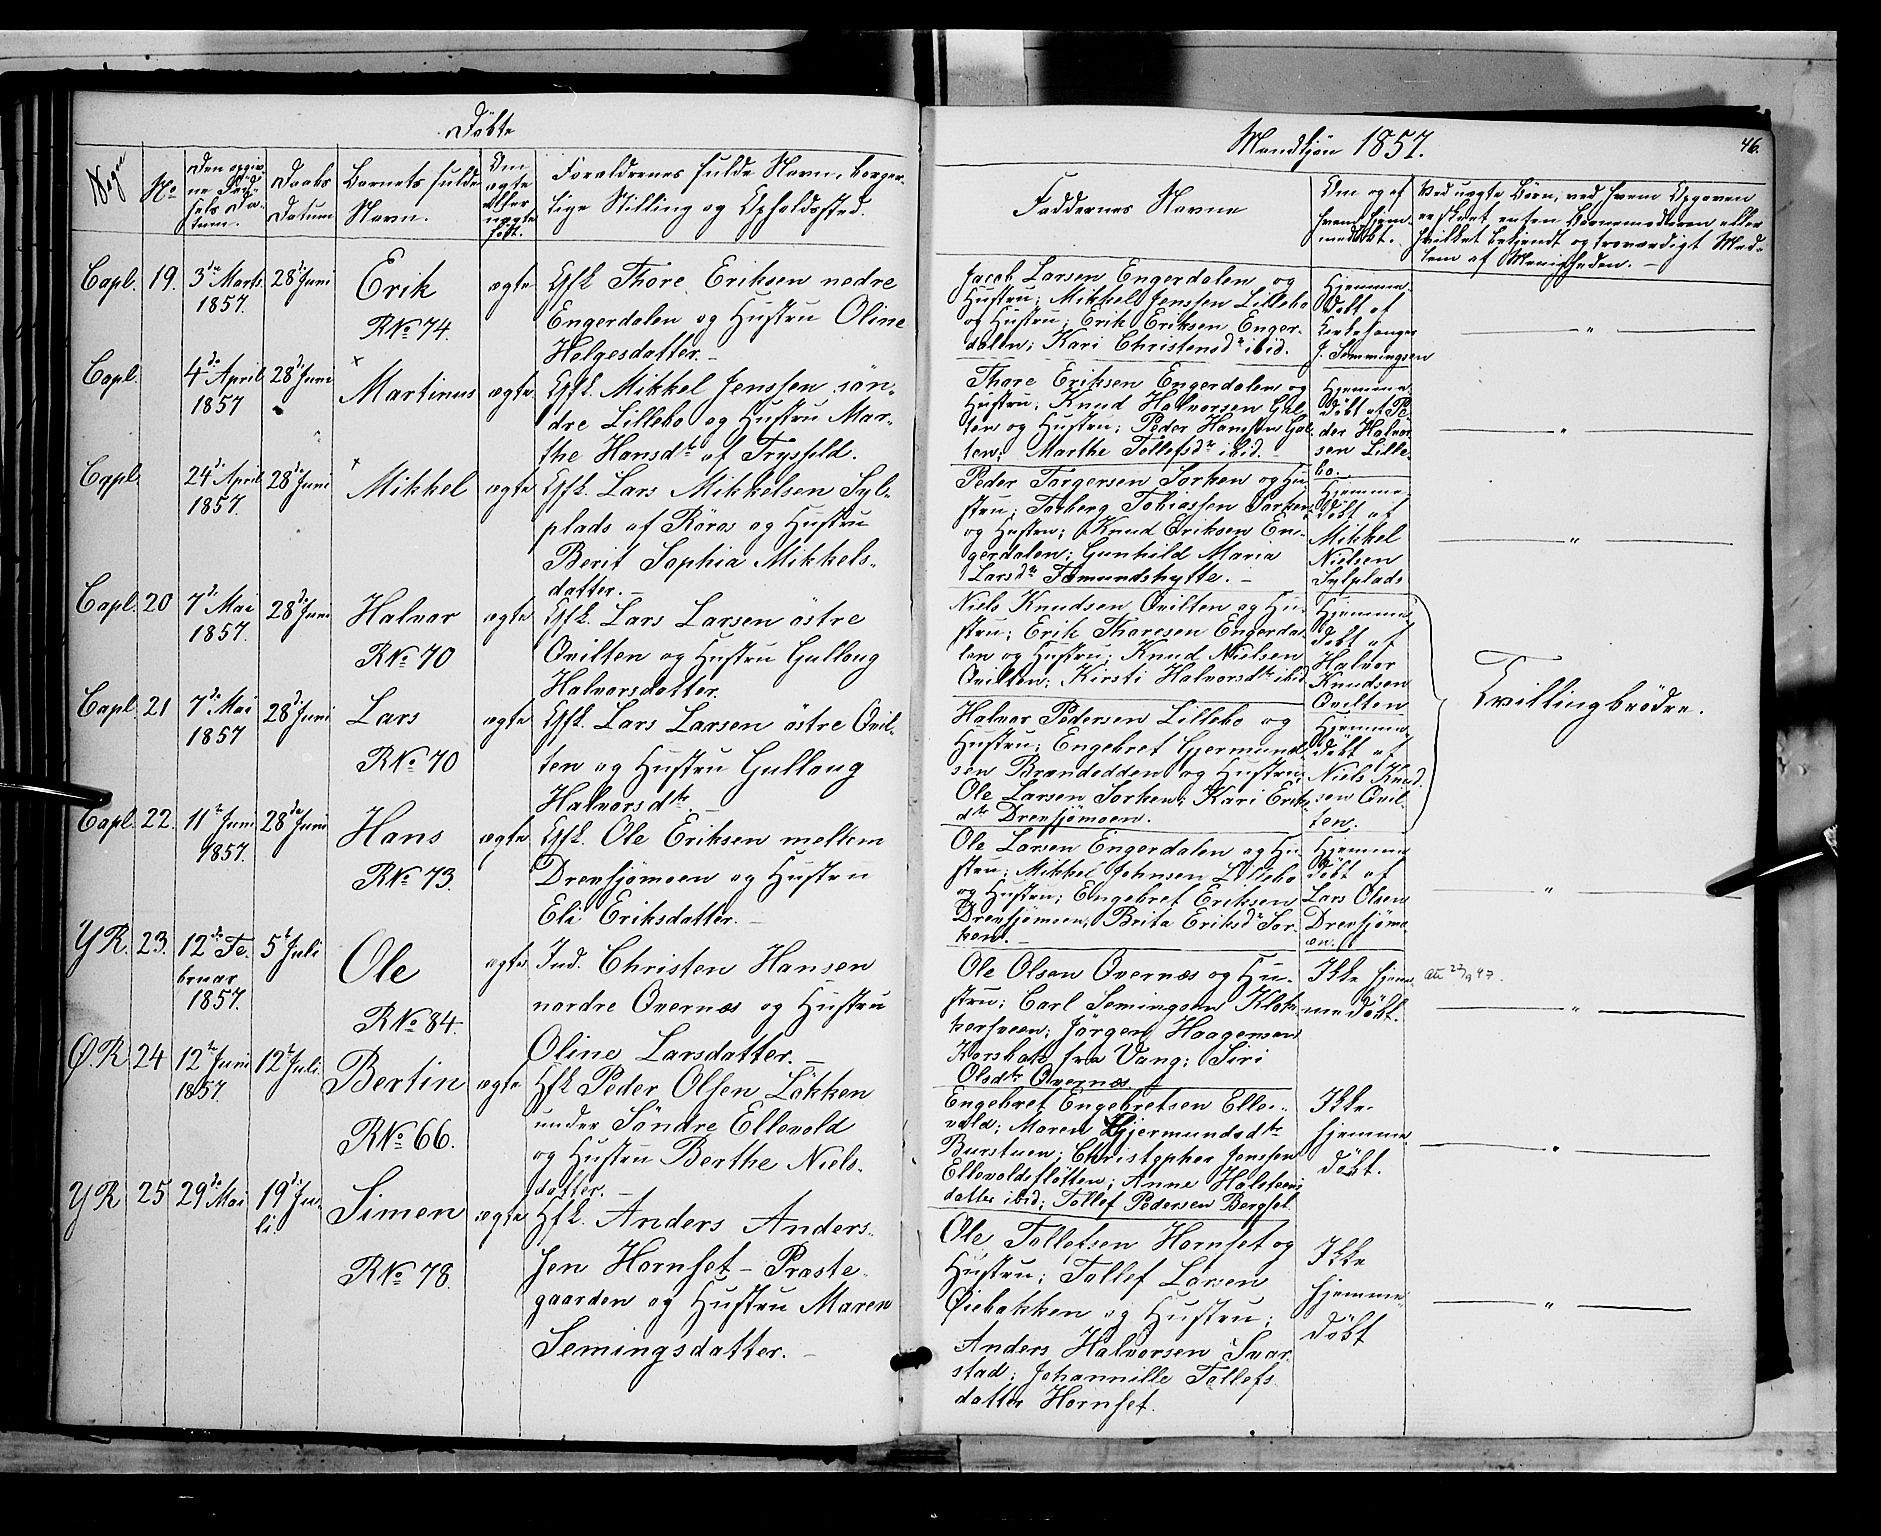 Döbte
Mandkjön 1857.
46.
Sogn
No
Den opgiv-
ne Föd-
sels Da-
tum.
Daabs
Datum
Barnets fulde
Navn.
Om
ægte
eller
uægte
født.
Forældrenes fulde Navn, borger-
lige Stilling og Opholdssted.
Faddernes Navne
Om og af
hvem hjem-
medöbt.
Ved uægte Börn, ved hvem Opgaven
er skeet enten Barnemoderen eller
hvilket bekjendt og troværdigt Med-
lem af Menigheden. —
Capl. 19. 3de Marts
1857.
28de Juni
Erik
RNo 74.
ægte
Gfk Thore Eriksen nedre
Engerdalen og Hustru Oline
Helgesdatter. —
Jacob Larsen Engerdalen og
Hustru; Mikkel Jenssen Lillebo
og Hustru; Erik Eriksen Enger-
dalen; Kari Christensdr ibid.
Hjemme-
döbt af
Kirkesanger
J. Semmingsen
— " —
Capl. 4de April
1857
28de Juni
x
Martinus
ægte
Gfk. Mikkel Jenssen sön-
dre Lillebo og Hustru Mar-
the Hansdtr af Trysfeld.
Thore Eriksen Engerdalen og
Hustru; Knud Halvorsen Gal-
ten og Hustru; Peder Hansen Gal-
ten; Marthe Tollefsdr ibid. —
Hjemme-
döbt af Pe-
der Halvor-
sen Lille-
bo.
— " —
Capl. 24de April
1857.
28de Juni
x
Mikkel
ægte
Gfk. Lars Mikkelsen Syl-
plads af Röros og Hustru
Berit Sophia Mikkels-
datter. —
Peder Torgersen Sorken og Hu-
stru; Torberg Tobiassen Sorken
og Hustru; Knud Eriksen En-
gerdalen; Gunhild Maria
Larsdr Fæmundshytte. —
Hjemme-
döbt af
Mikkel
Nielsen
Sylplads
— " —
Capl. 20 7de Mai
1857.
28de Juni
Halvor
RNo 70
ægte
Gfk. Lars Larsen östre
Qvilten og Hustru Gulloug
Halvorsdatter.
Niels Knudsen Qvilten og Hu-
stru; Erik Thoresen Engerda-
len og Hustru; Knud Nielsen
Qvilten; Kirsti Halvorsdtr ibid
Hjemme-
döbt af
Halvor
Knudsen
Qvilten
Tvillingbrödre.
Capl. 21 7de Mai
1857
28de Juni
Lars
RNo 70
ægte
Gfk. Lars Larsen östre Qvil-
ten og Hustru Gulloug
Halvorsdtr. —
Halvor Pedersen Lillebo og
Hustru; Engebret Gjermund-
sen Brændodden og Hustru;
Ole Larsen Sorken; Kari Eriks-
dtr Drevsjömoen.
Hjemme-
döbt af
Niels Knud-
sen Qvil-
ten.
Capl. 22. 11te Juni
1857.
28de Juni
Hans
RNo 73.
ægte
Gfk. Ole Eriksen mellem
Drevsjömoen og Hustru
Eli Eriksdatter. —
Ole Larsen Engerdalen og Hu-
stru; Mikkel Johnsen Lillebo
og Hustru; Engebret Eriksen
Drevsjömoen; Brita Eriksdr Sor-
ken. —
Hjemme-
döbt af
Lars Olsen
Drevsjömo-
en.
— " —
YR. 23. 12te Fe-
bruar
1857.
5te Juli
Ole
RNo 84.
ægte
Ind. Christen Hansen
nordre Overnæs og Hustru
Oline Larsdatter. —
Ole Olsen Overnæs og Hu-
stru; Carl Semingsen Klok-
kersveen; Jörgen Haagensen
Korsbak fra Vang; Siri
Olsdtr Overnæs
Ikke hjem-
medöbt.
— " —
Ø.R 24 12te Juni
1857.
12te Juli.
Bertin
RNo 66.
ægte
Hfk Peder Olsen Lökken
under Söndre Ellevold
og Hustru Berthe Niels-
datter. —
Engebret Engebretsen Elle-
vold; Maren Gjermundsdtr
Burstuen; Christopher Jenssen
Ellevoldsflötten; Anne Halsteins-
datter ibid; Tollef Pedersen Bergset
Ikke
hjemme-
döbt.
— " —
YR 25 29de Mai
19de Ju-
li.
Simen
RNo 78.
ægte
Hfk. Anders Anders-
sen Hornset - Præste-
gaarden og Hustru Maren
Semingsdatter. —
Ole Tollefsen Hornset og
Hustru; Tollef Larsen
Öiebakken og Hustru;
Anders Halvorsen Svar-
stad; Johannille Tollefs-
datter Hornset.
Ikke
hjemme-
döbt
— " —